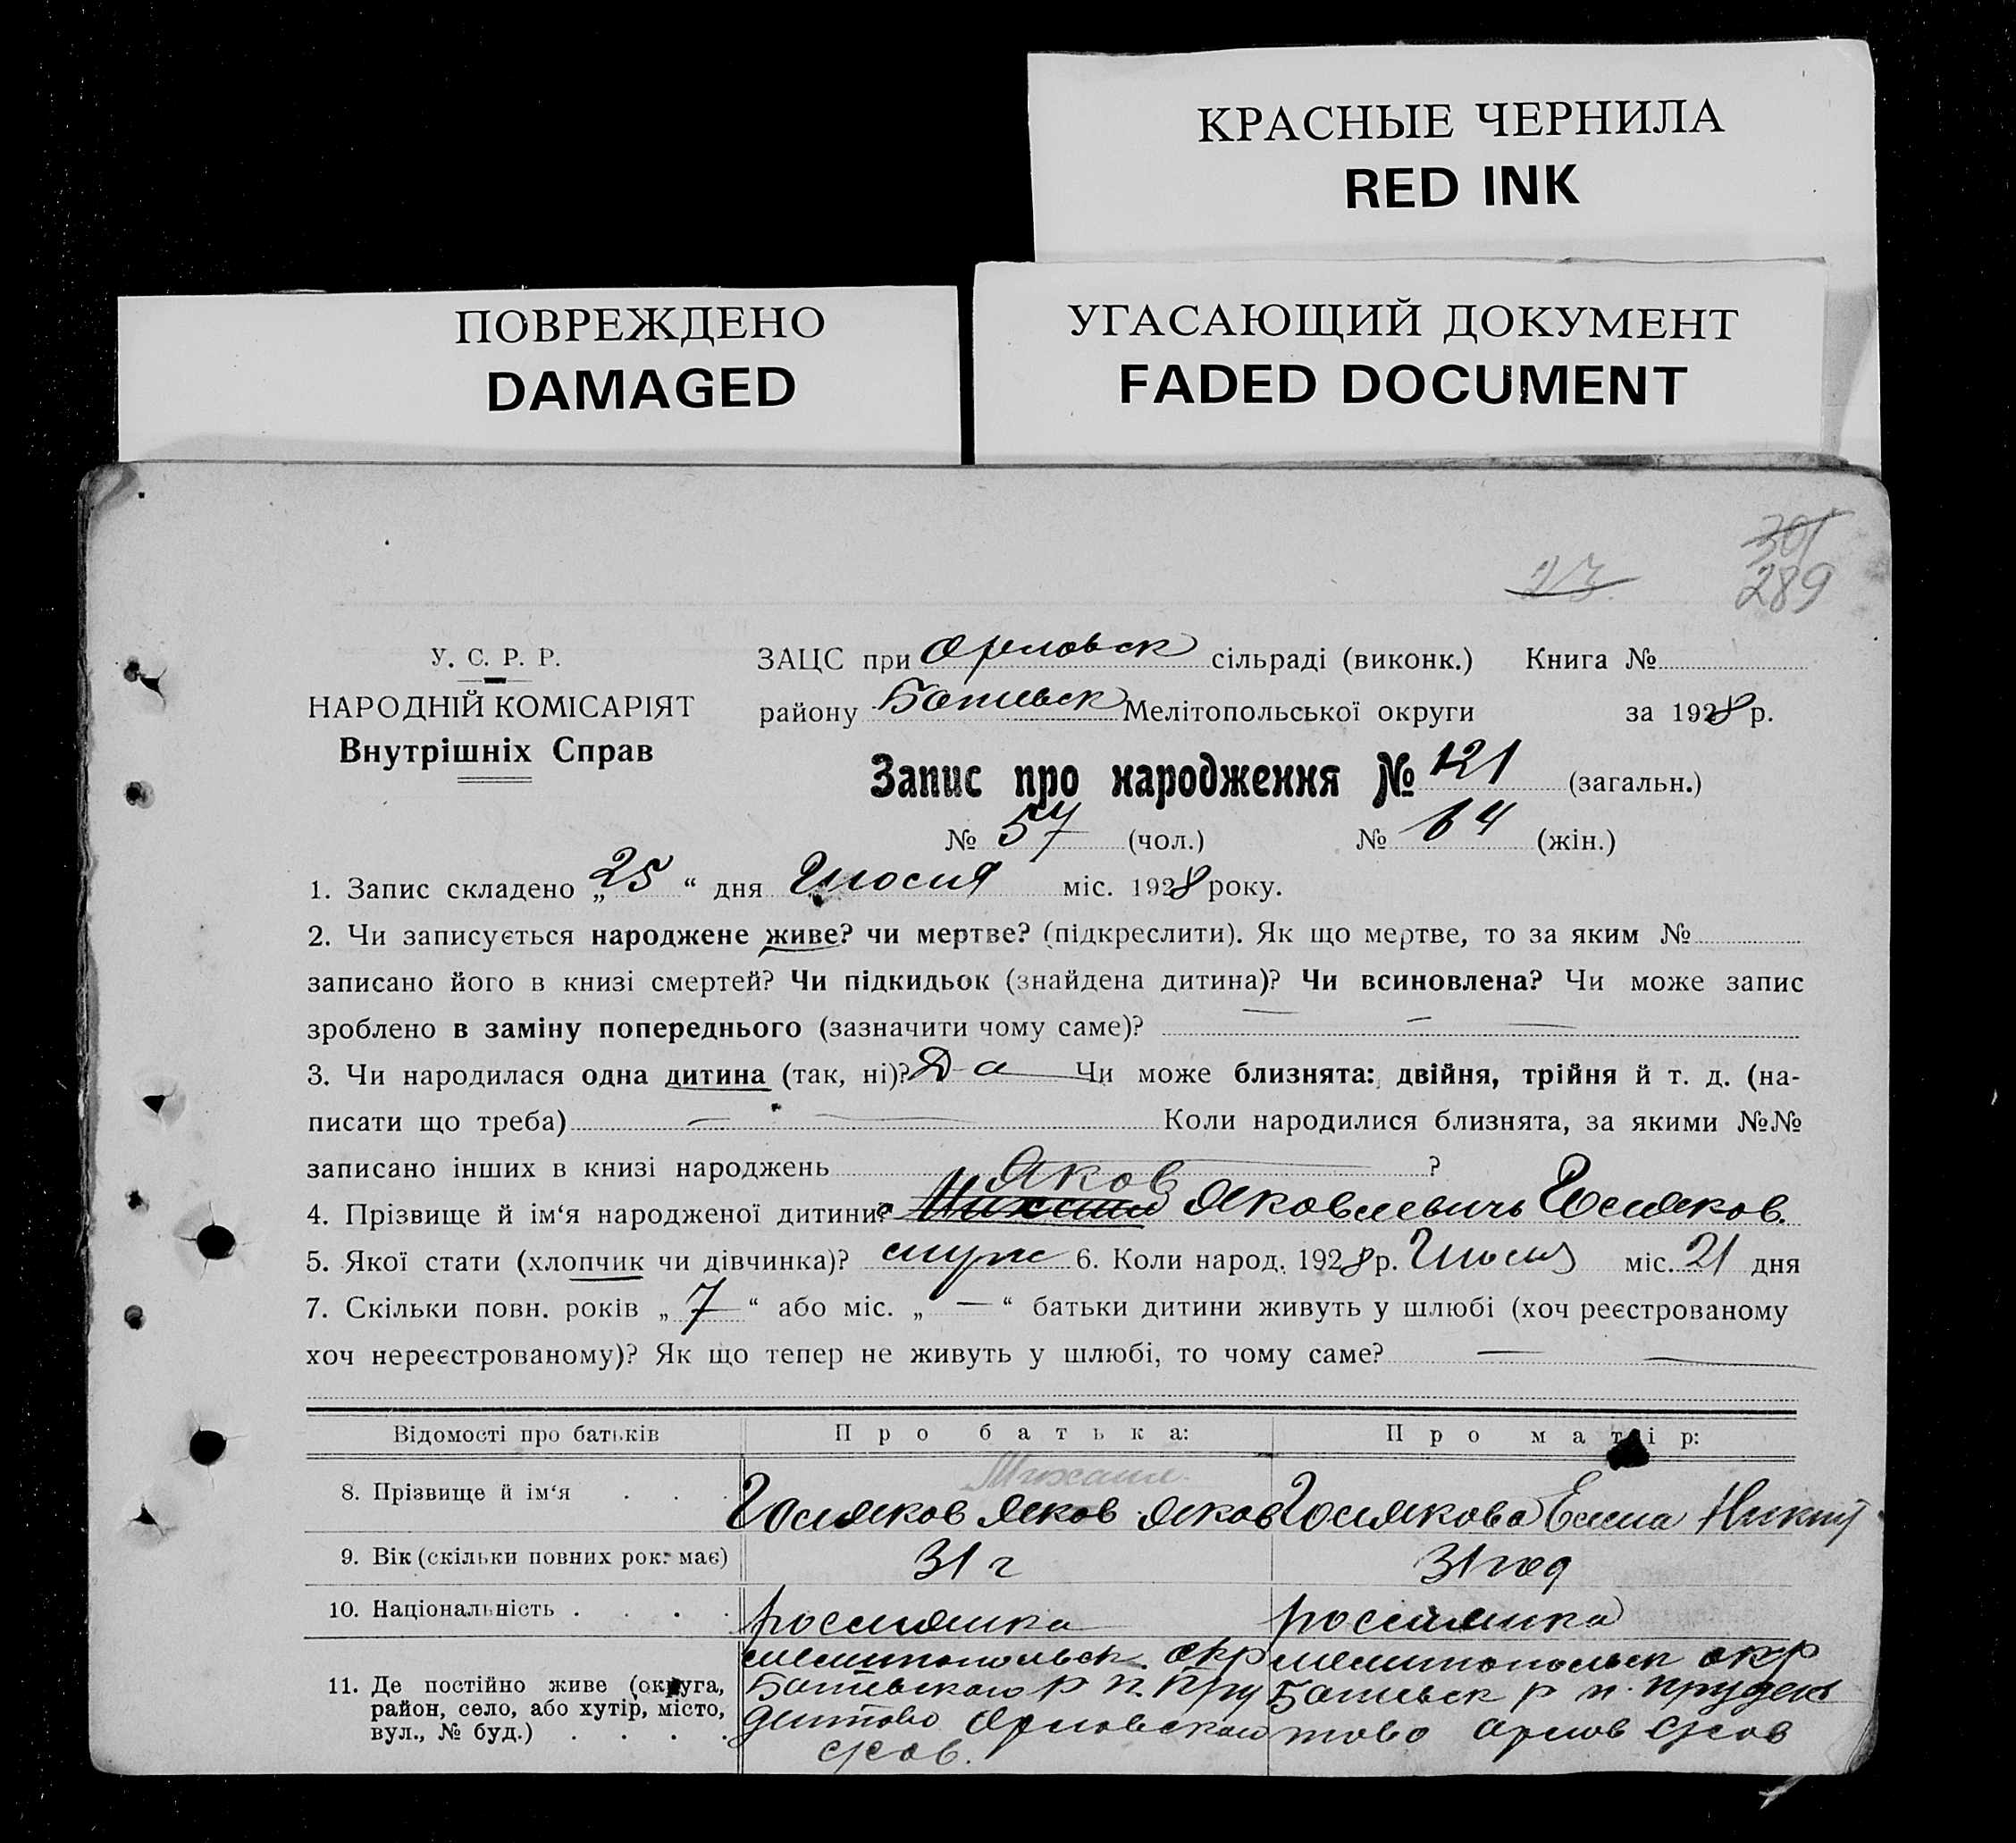 КРАСНЫЕ ЧЕРНИЛА
RED INK
ПОВРЕЖДЕНО
DAMAGED
УГАСАЮЩИЙ ДОКУМЕНТ
FADED DOCUMENT
301
23
289
У. С. Р. Р.
НАРОДНІЙ КОМІСАРІЯТ
Внутрішніх Справ
ЗАЦС при Орловск сільраді (виконк.) Книга №
району Ботиевск Мелітопольської округи за 1928 р.
Запис про народження № 121 (загальн.)
№ 57 (чол.) № 64 (жін.)
1. Запис складено „25“ дня Июля міс. 1928 року.
2. Чи записується народжене живе? чи мертве? (підкреслити). Як що мертве, то за яким №
записано його в книзі смертей? Чи підкидьок (знайдена дитина)? Чи всиновлена? Чи може запис
зроблено в заміну попереднього (зазначити чому саме)? — - —
3. Чи народилася одна дитина (так, ні)? Да Чи може близнята: двійня, трійня й т. д. (на-
писати що треба) — — Коли народилися близнята, за якими №№
записано інших в книзі народжень ?
Яков
4. Прізвище й ім‘я народженої дитини? Михаил Яковлевичь
5. Якої стати (хлопчик чи дівчинка)? муж 6. Коли народ. 1928 р. Июля міс. 21 дня
7. Скільки повн. років „7“ або міс. „—“ батьки дитини живуть у шлюбі (хоч реєстрованому
хоч нереєстрованому)? Як що тепер не живуть у шлюбі, то чому саме? — —
Відомості про батьків Про батька: Про матір:
Михаил
8. Прізвище й ім‘я . . . Яков Яков Елена Никит
9. Вік (скільки повних рок. має) 31 г 31 год
10. Національність . . . . россиянка россиянка
11. Де постійно живе (округа, район, село, або хутір, місто, вул., № буд.) . . . .
мелитопольск. окр мелитопольск окр
Ботиевского р п. Пру Ботиевск р п. Пруден
дентово Орловской тово Орлов